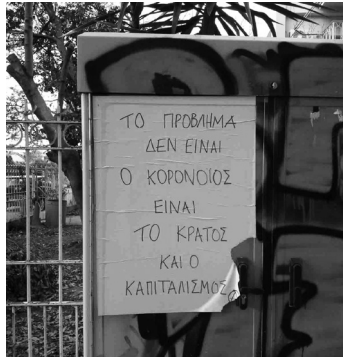 ΤΟ ΠΡΟΒΛΗΜΑ
ΔΕΝ ΕΙΝΑΙ
Ο ΚΟΡΟΝΟΪΟΣ
ΕΙΝΑΙ
ΤΟ ΚΡΑΤΟΣ
ΚΑΙ Ο
ΚΑΠΙΤΑΛΙΣΜΟΣ